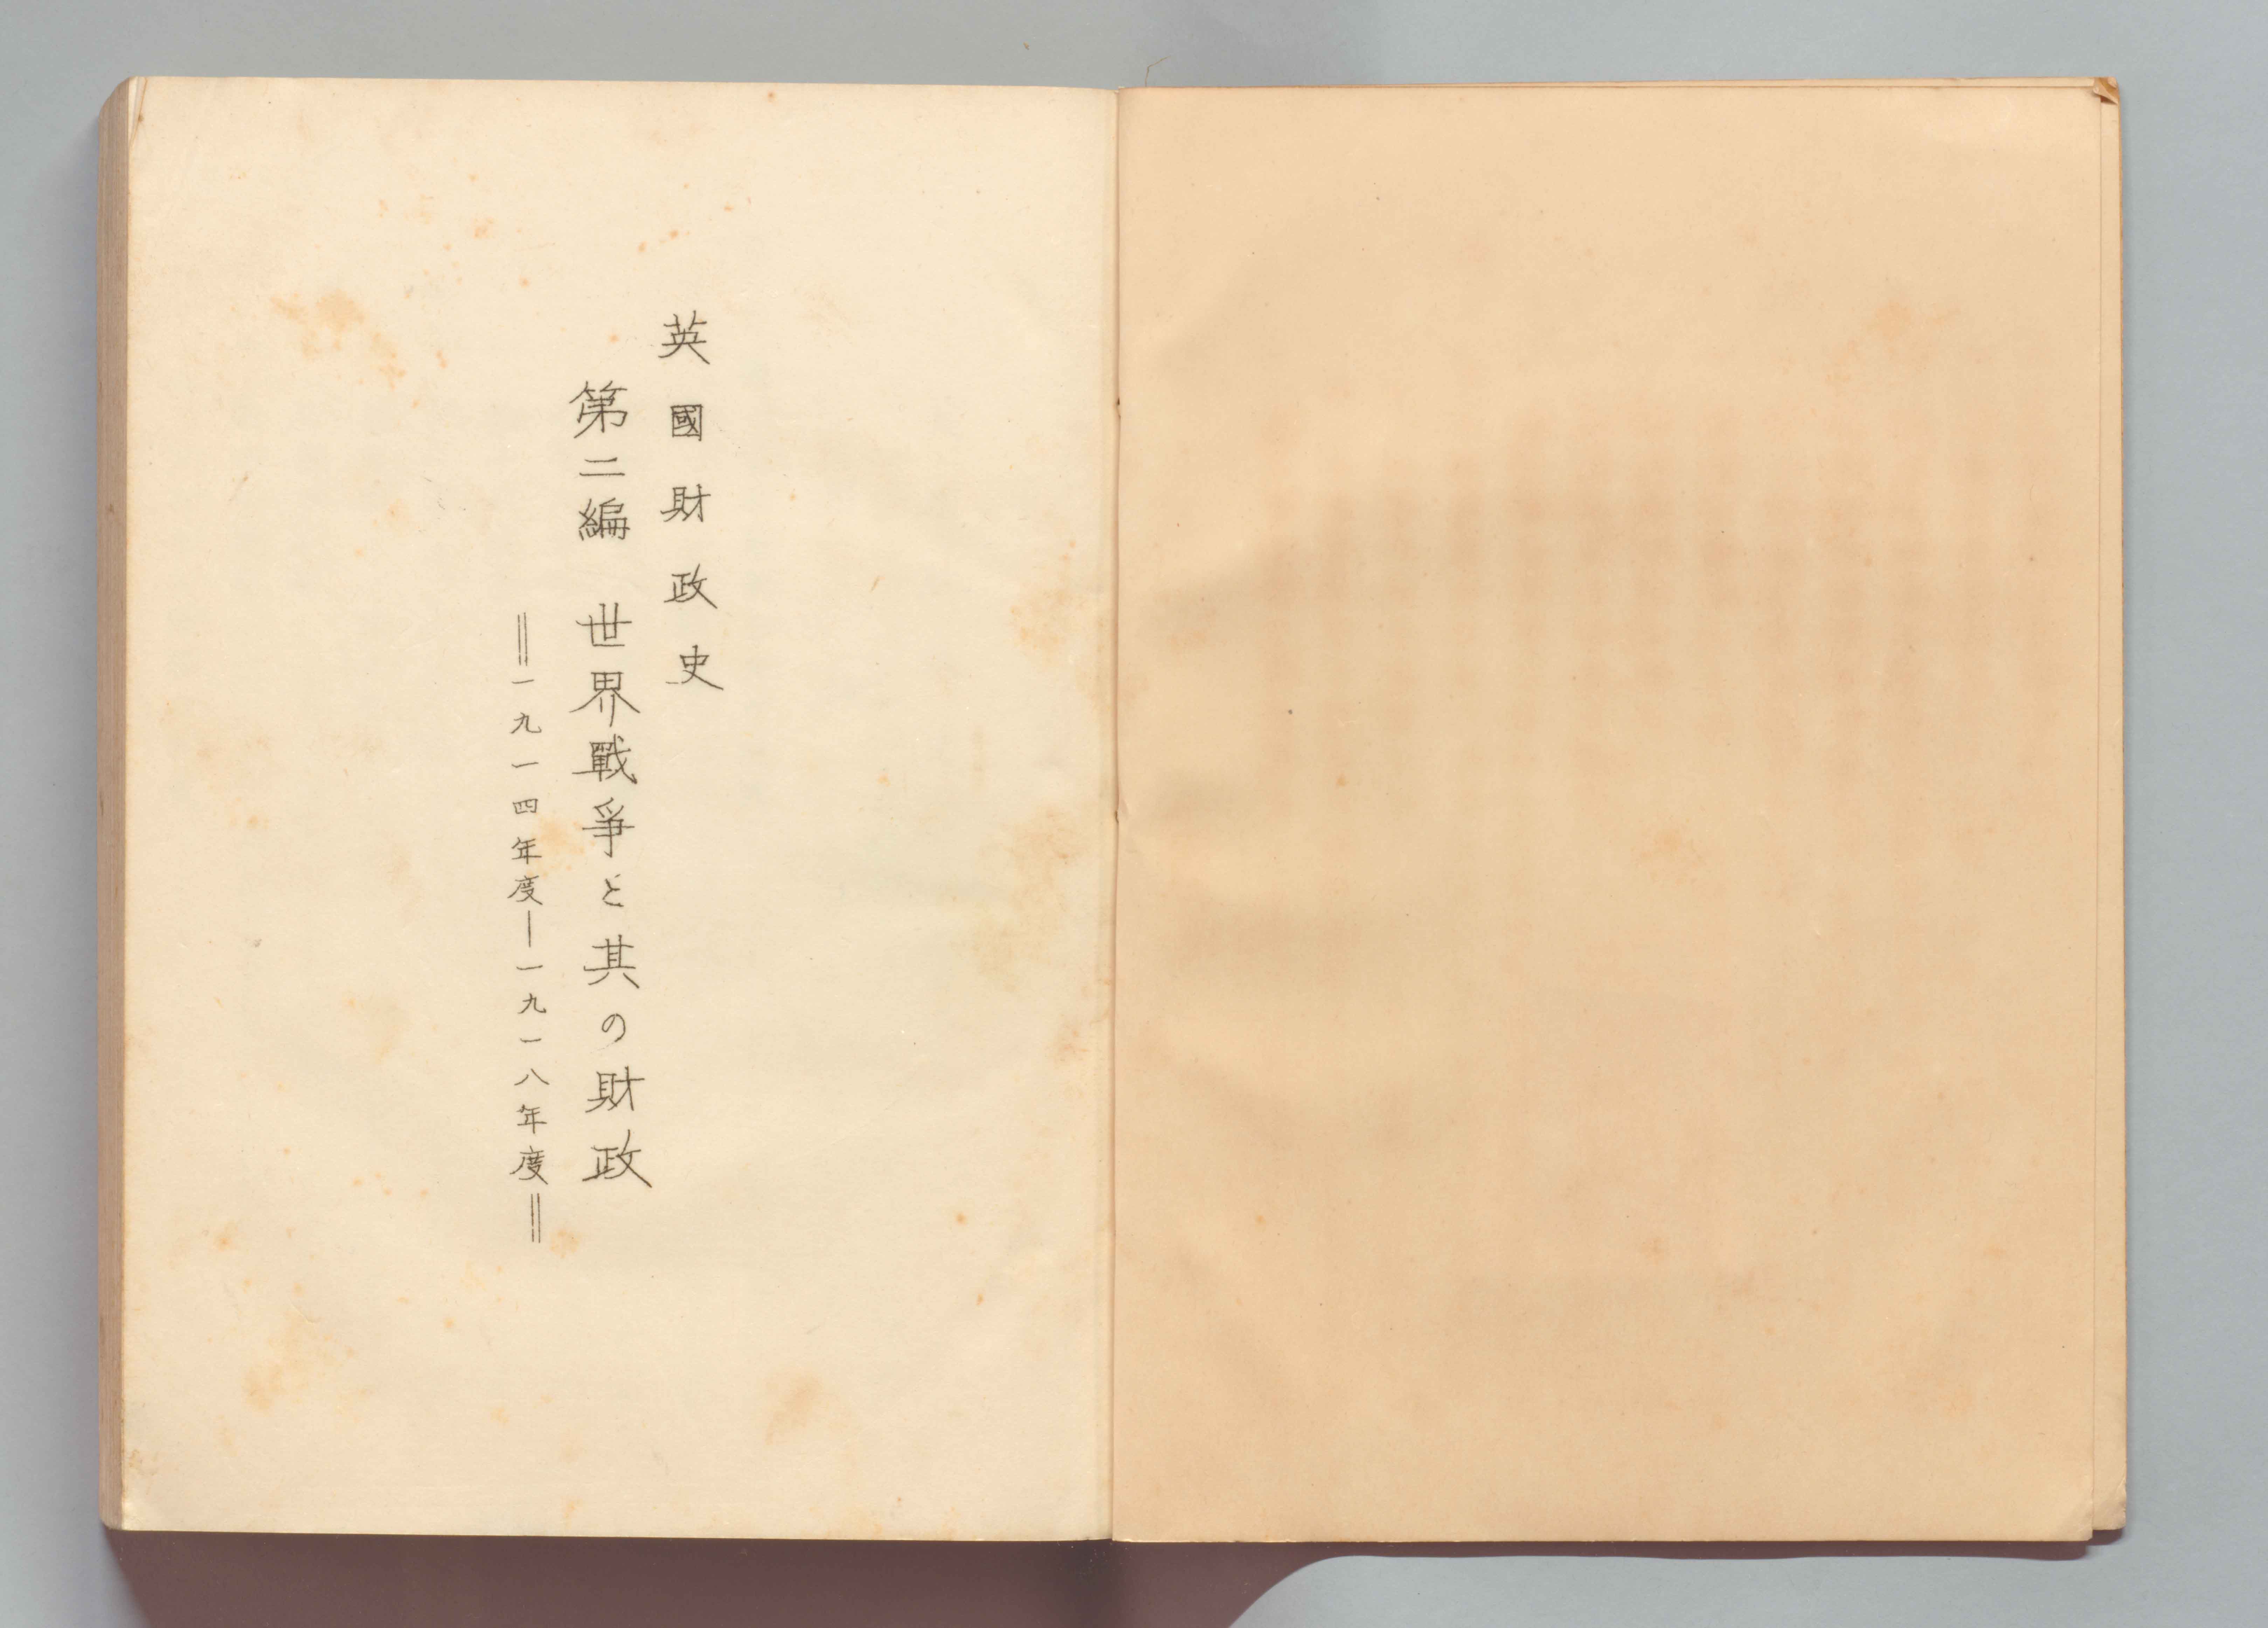 英國財政史
第二編　世界戰爭と其の財政
‖一九一四年度―一九一八年度‖